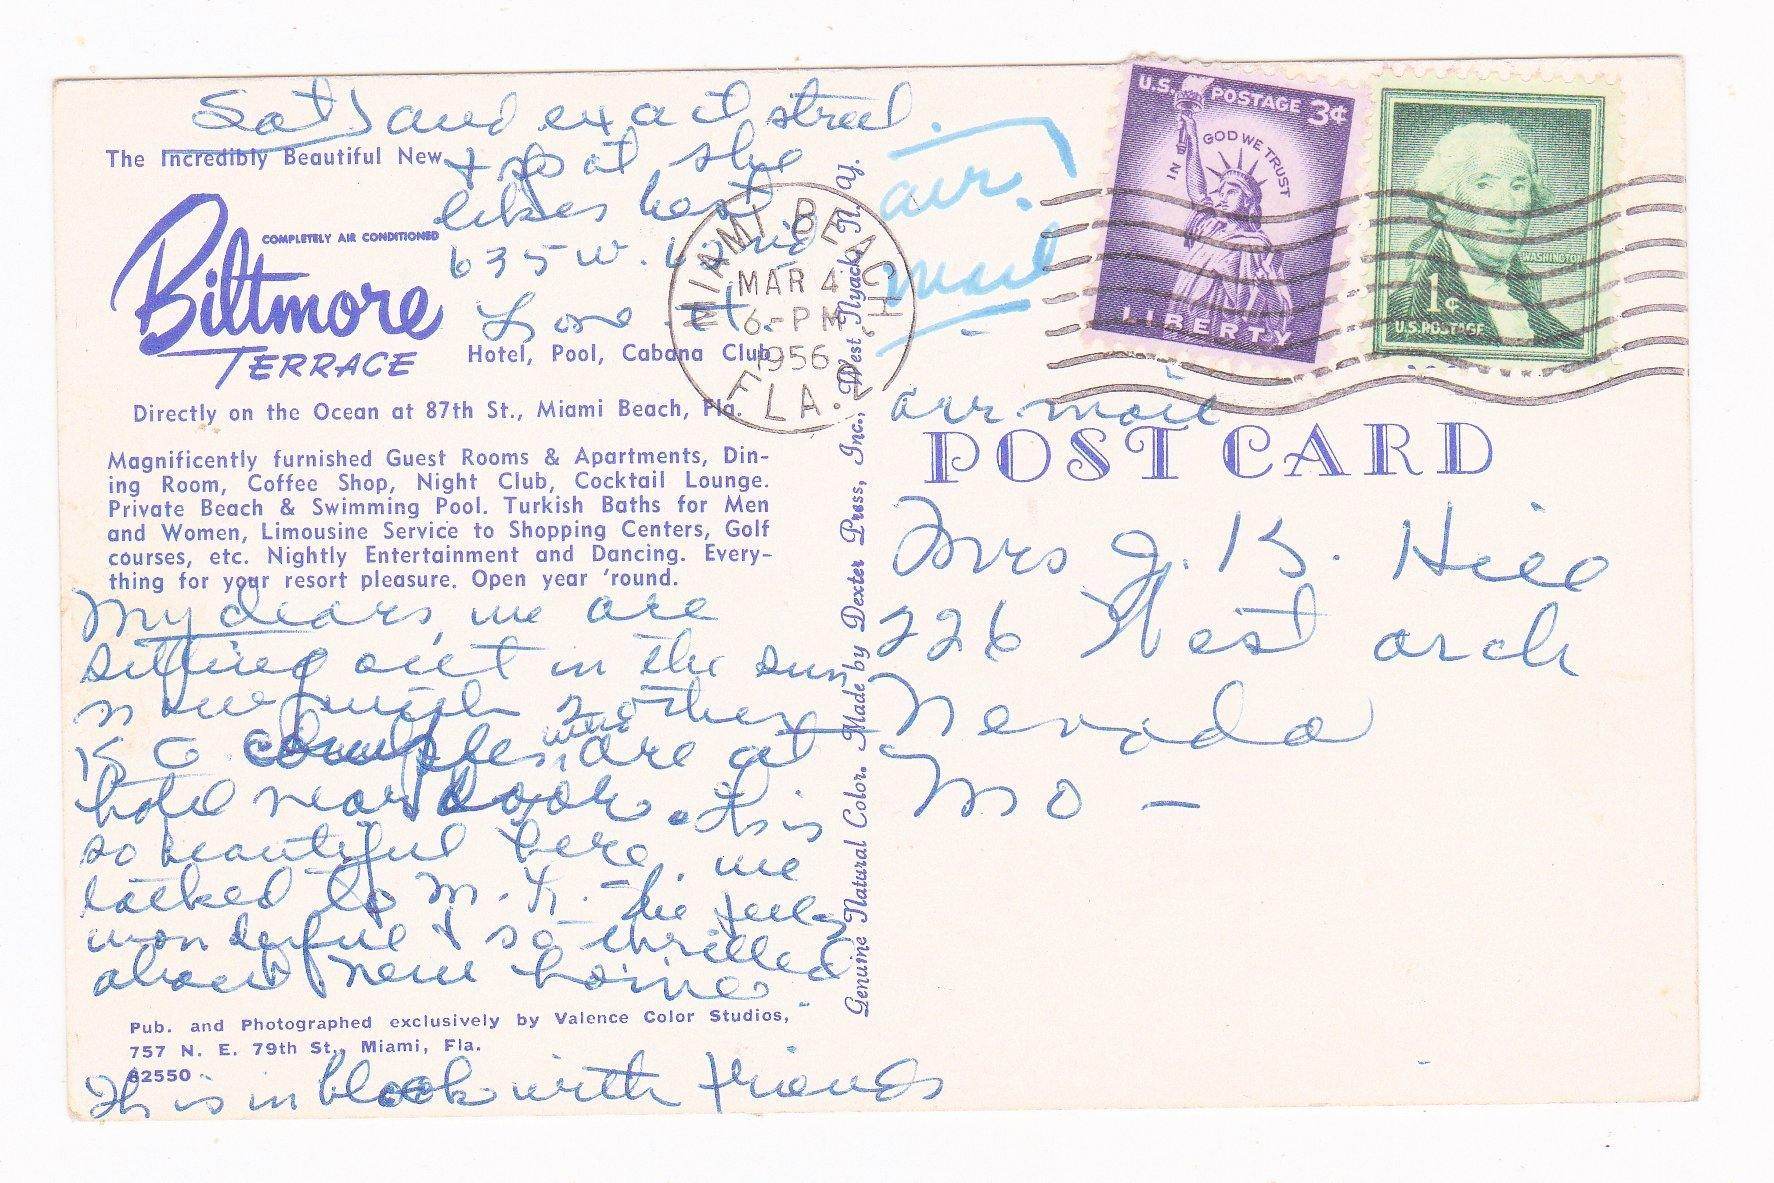 Sat) and exact street
The Incredibly Beautiful New
+ spot she
likes best.
COMPLETELY AIR CONDITIONED
Biltmore
635 W. 62nd
Love
TERRACE
Hotel, Pool, Cabana Club
Directly on the Ocean at 87th St., Miami Beach, Fla.
Magnificently furnished Guest Rooms & Apartments, Din-
ing Room, Coffee Shop, Night Club, Cocktail Lounge.
Private Beach & Swimming Pool. Turkish Baths for Men
and Women, Limousine Service to Shopping Centers, Golf
courses, etc. Nightly Entertainment and Dancing. Every-
thing for your resort pleasure. Open year 'round.
My dears, we are
sitting out in the sun
with 2 other
K C couples, who are at
hotel near door. This is
so beautiful here. we
talked to M. The feels
wonderful & so thrilled
about new home
Pub. and Photographed exclusively by Valence Color Studios,
757 N. E. 79th St., Miami, Fla.
82550
This in block with friends
Genuine Natural Color. Made by Dexter Press, Inc., West Nyack, N. Y.
MIAMI BEACH
MAR 4
6-PM
1956
FLA.
air
mail
U.S. POSTAGE 3¢
IN GOD WE TRUST
LIBERTY
WASHINGTON
1¢
U.S. POSTAGE
air mail
POST CARD
Mrs J. K. Hill
226 West arch
Nevada
Mo -